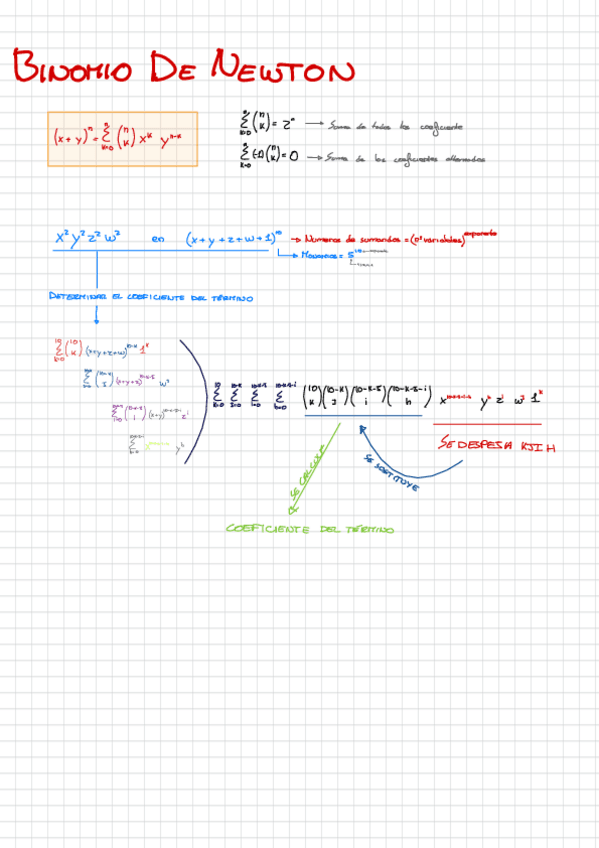 BINOMIO DE NEWTON
(x+y)^n = Σ_{k=0}^{n} (n k) x^k y^{n-k}
Σ_{k=0}^{n} (n k) = 2^n → Suma de todos los coeficiente
Σ_{k=0}^{n} (-1)^k (n k) = 0 → Suma de los coeficientes alternados
x² y² z² w² en (x+y+z+w+1)^10 → Numeros de sumandos = (nº variables)^exponente
→ Monomios = 5^10
DETERMINAR EL COEFICIENTE DEL TÉRMINO
Σ_{k=0}^{10} (10 k) (x+y+z+w)^{10-k} 1^k
Σ (10-k J) (x+y+z)^{10-k-J} w^J
Σ (10-k-J i) (x+y)^{10-k-J-i} z^i
Σ x y^h
Σ_{k=0}^{10} Σ_{J=0}^{10-k} Σ_{i=0}^{10-k-J} Σ_{h=0}^{10-k-J-i} (10 k) (10-k J) (10-k-J i) (10-k-J-i h) x^{10-k-J-i-h} y^h z^i w^J 1^k
SE DESPEJA KJIH
SE CALCULA
SE SUSTITUYE
COEFICIENTE DEL TÉRMINO